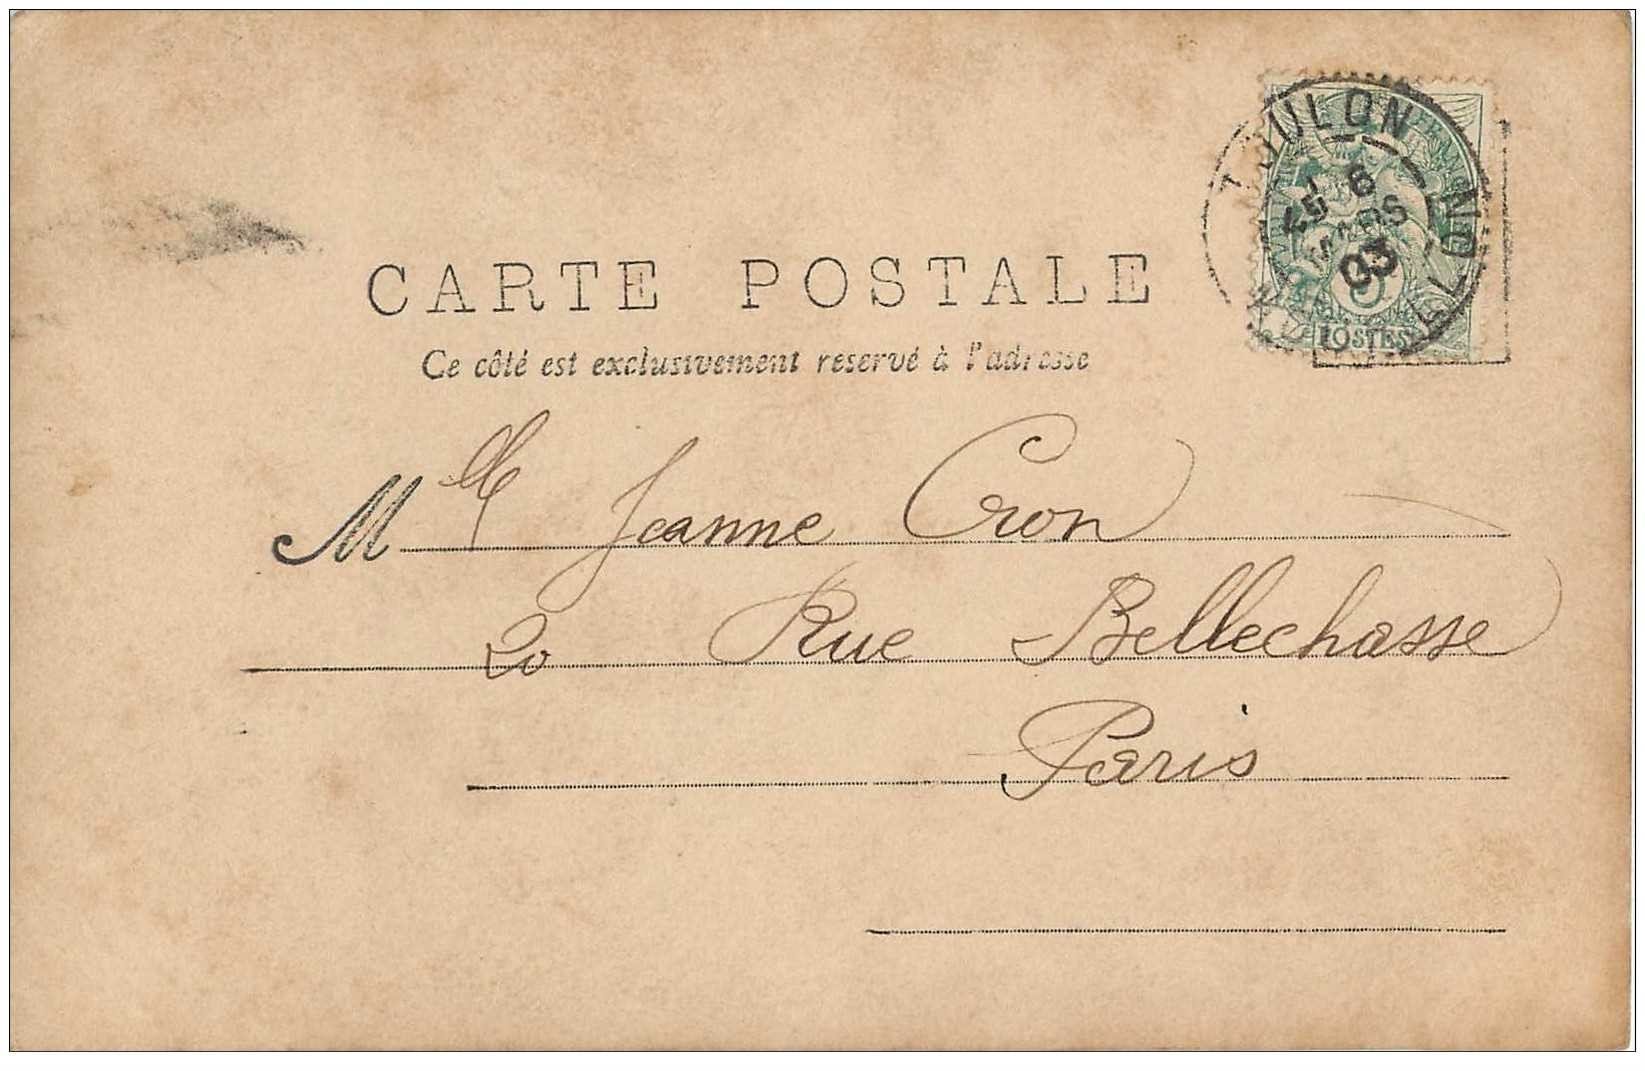 CARTE POSTALE
Ce côté est exclusivement reservé à l'adresse
TOULON
6
MARS
03
5
POSTES
Mlle Jeanne Cron
20 Rue Bellechasse
Paris